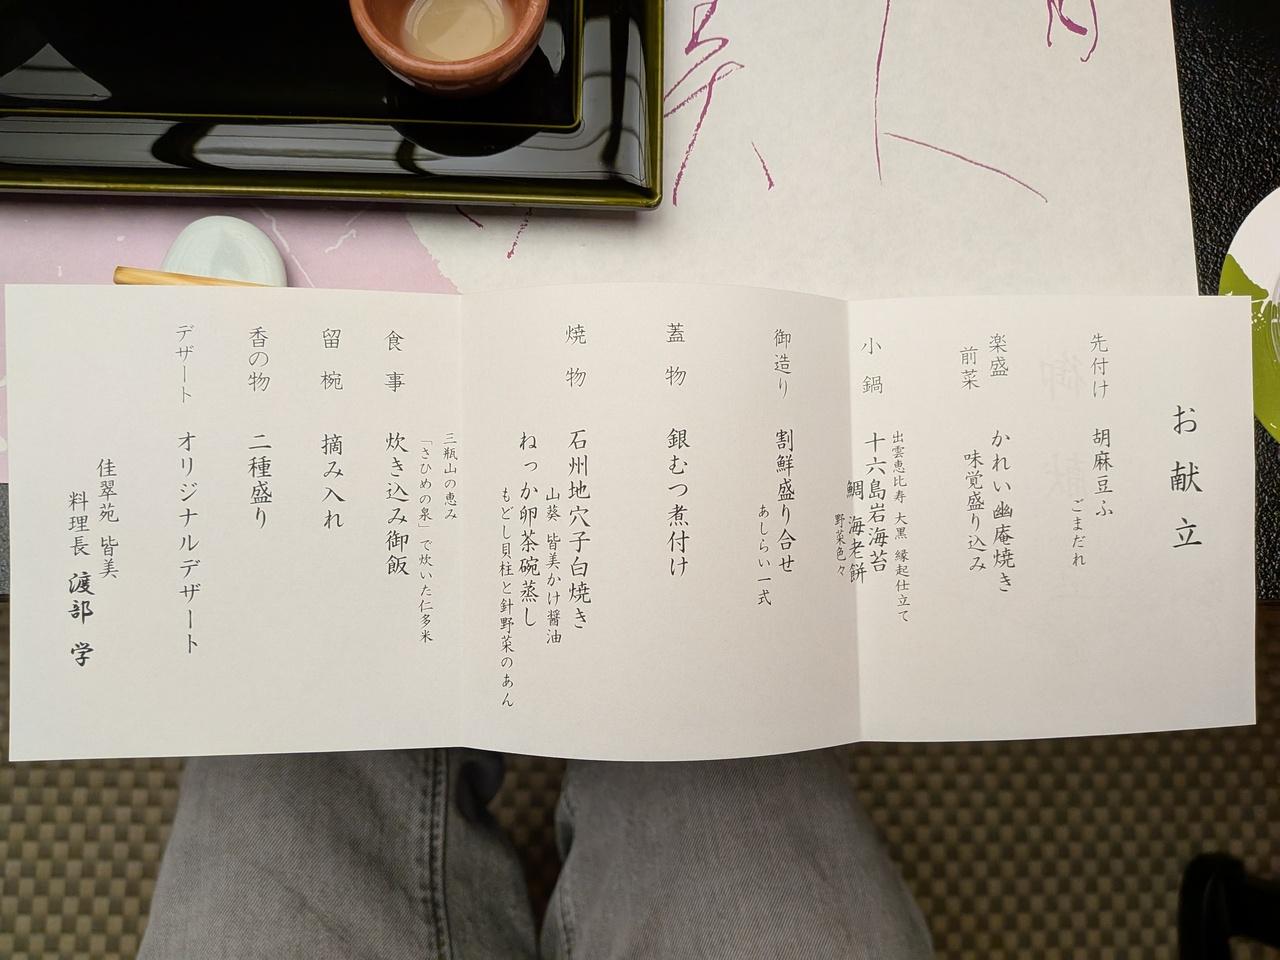 お献立
先付け 胡麻豆ふ
ごまだれ
楽盛 かれい幽庵焼き
前菜 味覚盛り込み
出雲恵比寿 大黒 縁起仕立て
小鍋 十六島岩海苔
鯛 海老餅
野菜色々
御造り 割鮮盛り合せ
あしらい一式
蓋物 銀むつ煮付け
焼物 石州地穴子白焼き
山葵 皆美かけ醤油
ねっか卵茶碗蒸し
もどし貝柱と針野菜のあん
三瓶山の恵み
「さひめの泉」で炊いた仁多米
食事 炊き込み御飯
留椀 摘み入れ
香の物 二種盛り
デザート オリジナルデザート
佳翠苑 皆美
料理長 渡部 学